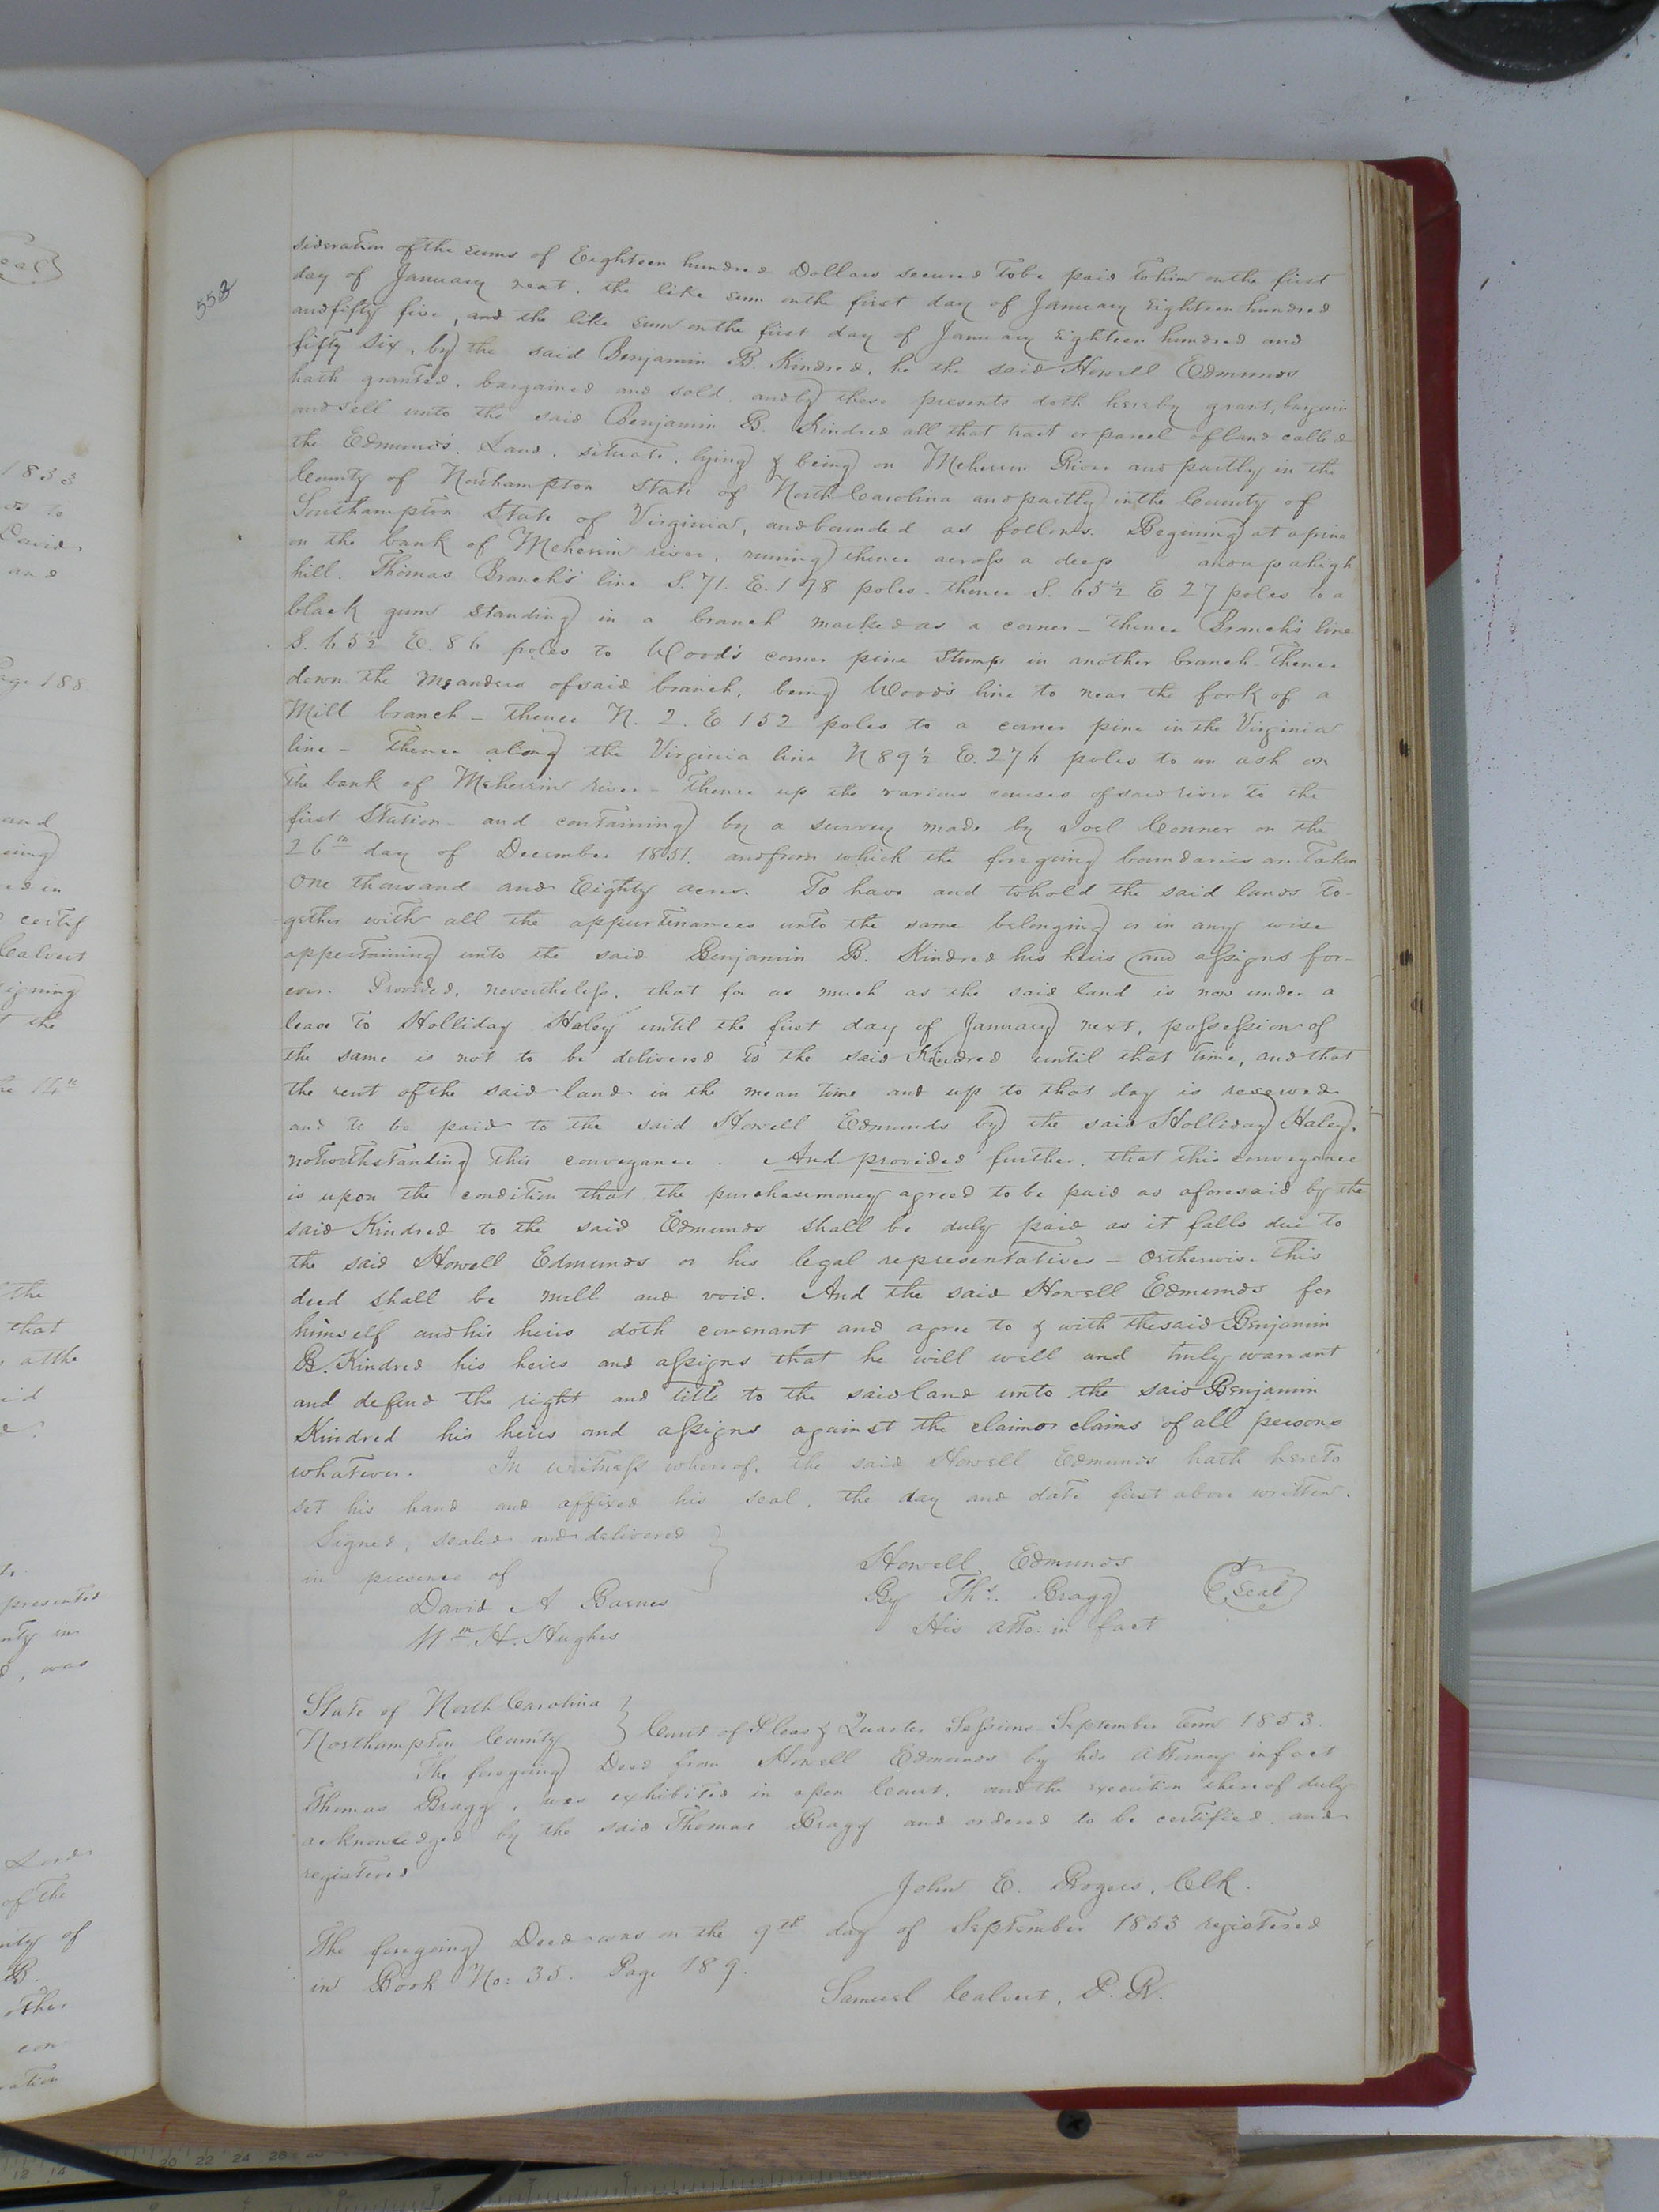 553
sideration of the sums of Eighteen hundred Dollars secured to be paid to him on the first
day of January next, the like sum on the first day of January Eighteen hundred
and fifty five, and the like sum on the first day of January Eighteen hundred and
fifty six, by the said Benjamin B. Kindred, he the said Howell Edmunds
hath granted, bargained and sold, and by these presents doth hereby grant, bargain
and sell unto the said Benjamin B. Kindred all that tract or parcel of land called
the Edmunds Land, situate, lying & being on Meherrin River and partly in the
County of Northampton State of North Carolina and partly in the County of
Southampton State of Virginia, and bounded as follows. Begining at a pine
on the bank of Meherrin river, runing thence across a deep and up a high
hill. Thomas Branch's line S. 71. E. 178 poles - thence S. 65½ E 27 poles to a
black gum standing in a branch marked as a corner - thence Branch's line
S. 65½ E. 86 poles to Wood's corner pine stump in another branch - thence
down the meanders of said branch, being Wood's line to near the fork of a
Mill branch - thence N. 2. E 152 poles to a corner pine in the Virginia
line - thence along the Virginia line N 89½ E. 276 poles to an ash on
the bank of Meherrin river - thence up the various courses of said river to the
first Station - and containing by a survey made by Joel Conner on the
26th day of December 1851. and from which the foregoing boundaries are taken
One thousand and Eighty acres. To have and to hold the said lands to-
-gether with all the appurtenances unto the same belonging or in any wise
appertaining unto the said Benjamin B. Kindred his heirs and assigns for-
ever. Provided, nevertheless, that for as much as the said land is now under a
lease to Holliday Haley until the first day of January next, possession of
the same is not to be delivered to the said Kindred until that time, and that
the rent of the said land in the mean time and up to that day is reserved
and to be paid to the said Howell Edmunds by the said Holliday Haley,
notwithstanding this conveyance. And provided further, that this conveyance
is upon the condition that the purchase money agreed to be paid as aforesaid by the
said Kindred to the said Edmunds shall be duly paid as it falls due to
the said Howell Edmunds or his legal representatives - Ortherwise this
deed shall be null and void. And the said Howell Edmunds for
himself and his heirs doth covenant and agree to & with the said Benjamin
B. Kindred his heirs and assigns that he will well and truly warrant
and defend the right and title to the said land unto the said Benjamin
Kindred his heirs and assigns against the claim or claims of all persons
whatever. In witness whereof, the said Howell Edmunds hath hereto
set his hand and affixed his seal, the day and date first above written.
Signed, sealed and delivered
in presence of
David A Barnes
Wm. H. Hughes
Howell Edmunds
By Ths. Bragg
His Atto: in fact
Seal
State of North Carolina
Northampton County
Court of Pleas & Quarter Sessions September term 1853.
The foregoing Deed from Howell Edmunds by his Attorney in fact
Thomas Bragg, was exhibited in open Court, and the execution thereof duly
acknowledged by the said Thomas Bragg and ordered to be certified, and
registered
John E. Rogers, Clk.
The foregoing Deed was on the 9th day of September 1853 registered
in Book No: 35. Page 189.
Samuel Calvert, P. R.